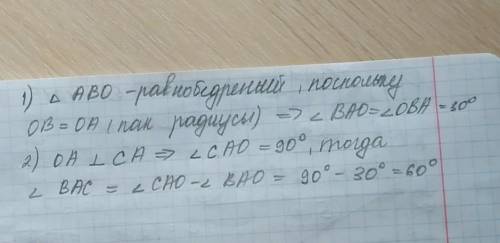 1) △ ABO - равнобедренный, поскольку
OB = OA (как радиусы) => ∠BAO = ∠OBA = 30°
2) OA ⊥ CA => ∠CAO = 90°, тогда
∠ BAC = ∠CAO - ∠ BAO = 90° - 30° = 60°